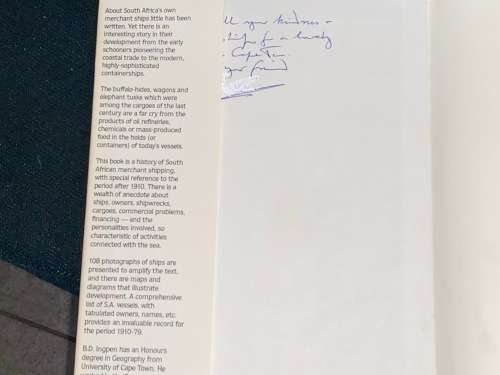 About South Africa's own
merchant ships little has been
written. Yet there is an
interesting story in their
development from the early
schooners pioneering the
coastal trade to the modern,
highly-sophisticated
containerships.
The buffalo-hides, wagons and
elephant tusks which were
among the cargoes of the last
century are a far cry from the
products of oil refineries,
chemicals or mass-produced
food in the holds (or
containers) of today's vessels.
This book is a history of South
African merchant shipping,
with special reference to the
period after 1910. There is a
wealth of anecdote about
ships, owners, shipwrecks,
cargoes, commercial problems,
financing — and the
personalities involved, so
characteristic of activities
connected with the sea.
108 photographs of ships are
presented to amplify the text,
and there are maps and
diagrams that illustrate
development. A comprehensive
list of S.A. vessels, with
tabulated owners, names, etc.
provides an invaluable record for
the period 1910-79.
B.D. Ingpen has an Honours
degree in Geography from
University of Cape Town. He
your kindness
for a lovely
Cape
your friend